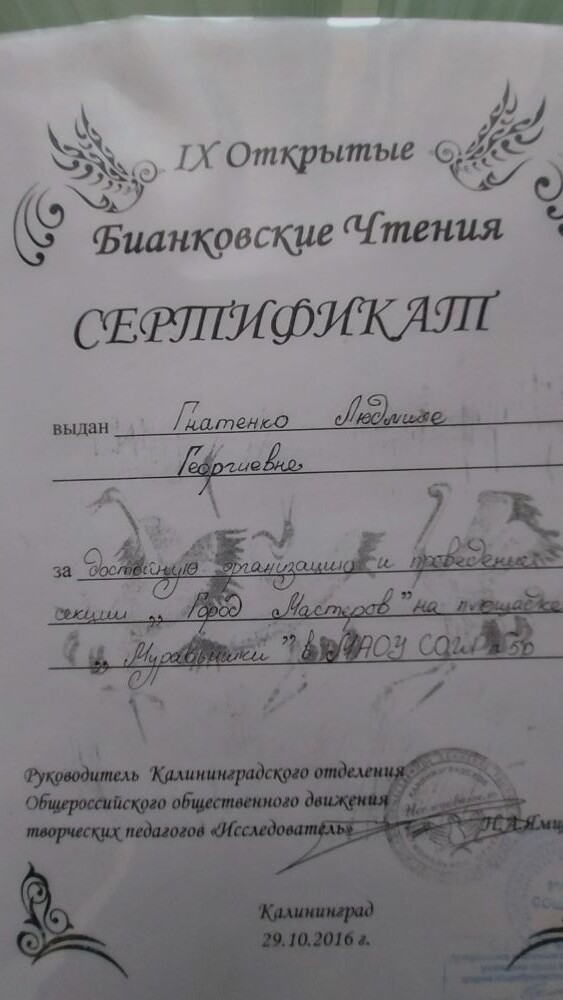 IX Открытые
Бианковские Чтения
СЕРТИФИКАТ
выдан Гнатенко Людмиле
Георгиевне
за достойную организацию и проведение
секции „Город Мастеров” на площадке
„Муравьишки” в МАОУ СОШ
Руководитель Калининградского отделения
Общероссийского общественного движения
творческих педагогов «Исследователь»
Н.А.Ямщ
Калининград
29.10.2016 г.